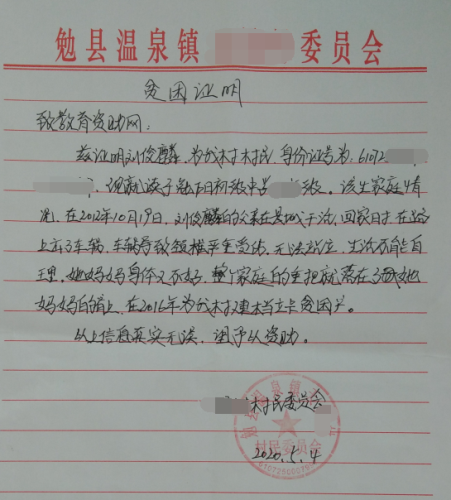 勉县温泉镇 委员会
贫困证明
致教育资助网:
兹证明刘俊麟,为我村村民 身份证号为:61072
,现就读于勉 初级中学 级。该生家庭情
况,在2012年10月19日,刘俊麟的父亲在县城干活,回家时在路
上出了车祸,车祸导致颈椎严重受伤,无法站立,生活不能自
理。她妈妈身体又不好,整个家庭的重担就落在了她
妈妈的肩上,在2016年为我村建档立卡贫困户。
以上信息真实无误,望予以资助。
村民委员会
村民委员会
2020.5.4